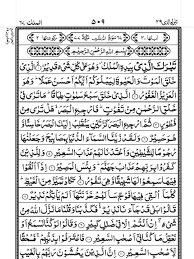 الملك ٦٧
٥٠٩
تبرك الذی ٢٩
بِسْمِ اللهِ الرَّحْمٰنِ الرَّحِيْمِ
تَبٰرَكَ الَّذِيْ بِيَدِهِ الْمُلْكُ وَهُوَ عَلٰى كُلِّ شَيْءٍ قَدِيْرُ الَّذِيْ
خَلَقَ الْمَوْتَ وَالْحَيٰوةَ لِيَبْلُوَكُمْ اَيُّكُمْ اَحْسَنُ عَمَلًا وَهُوَ
الْعَزِيْزُ الْغَفُوْرُ الَّذِيْ خَلَقَ سَبْعَ سَمٰوٰتٍ طِبَاقًا مَا تَرٰى فِيْ
خَلْقِ الرَّحْمٰنِ مِنْ تَفٰوُتٍ فَارْجِعِ الْبَصَرَ هَلْ تَرٰى مِنْ
فُطُوْرٍ ثُمَّ ارْجِعِ الْبَصَرَ كَرَّتَيْنِ يَنْقَلِبْ اِلَيْكَ الْبَصَرُ خَاسِئًا وَهُوَ
حَسِيْرٌ وَلَقَدْ زَيَّنَّا السَّمَاءَ الدُّنْيَا بِمَصَابِيْحَ وَجَعَلْنٰهَا رُجُوْمًا
لِّلشَّيٰطِيْنِ وَاَعْتَدْنَا لَهُمْ عَذَابَ السَّعِيْرِ وَلِلَّذِيْنَ
كَفَرُوْا بِرَبِّهِمْ عَذَابُ جَهَنَّمَ وَبِئْسَ الْمَصِيْرُ اِذَا اُلْقُوْا
فِيْهَا سَمِعُوْا لَهَا شَهِيْقًا وَهِيَ تَفُوْرُ تَكَادُ تَمَيَّزُ مِنَ الْغَيْظِ
كُلَّمَا اُلْقِيَ فِيْهَا فَوْجٌ سَاَلَهُمْ خَزَنَتُهَا اَلَمْ يَاْتِكُمْ نَذِيْرٌ
قَالُوْا بَلٰى قَدْ جَاءَنَا نَذِيْرٌ فَكَذَّبْنَا وَقُلْنَا مَا نَزَّلَ اللهُ مِنْ
شَيْءٍ اِنْ اَنْتُمْ اِلَّا فِيْ ضَلٰلٍ كَبِيْرٍ وَقَالُوْا لَوْ كُنَّا نَسْمَعُ اَوْ
نَعْقِلُ مَا كُنَّا فِيْ اَصْحٰبِ السَّعِيْرِ فَاعْتَرَفُوْا بِذَنْبِهِمْ فَسُحْقًا
لِّاَصْحٰبِ السَّعِيْرِ اِنَّ الَّذِيْنَ يَخْشَوْنَ رَبَّهُمْ بِالْغَيْبِ